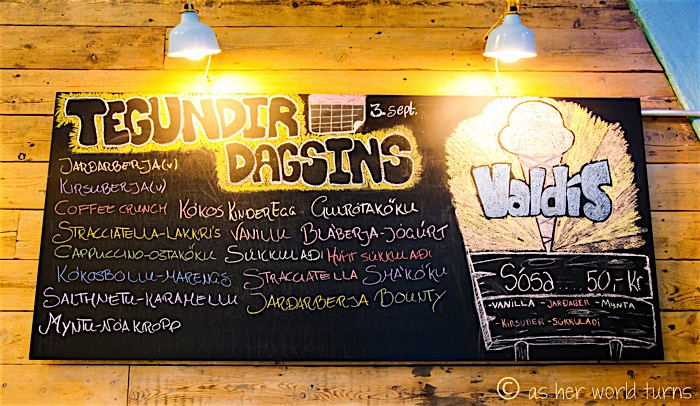 TEGUNDIR
DAGSINS
3. sept.
JARÐARBERJA(V)
KIRSUBERJA(V)
COFFEE CRUNCH KÓKOS KINDEREGG GULRÓTAKÖKU
STRACCIATELLA-LAKKRÍS VANILLU BLÁBERJA-JÓGÚRT
CAPPUCCINO-OSTAKÖKU SÚKKULAÐI HVÍTT SÚKKULAÐI
KÓKOSBOLLU-MARENGS STRACCIATELLA SMÁKÖKU
SALTHNETU-KARAMELLU JARÐARBERJA BOUNTY
MYNTU-NÓA KROPP
Valdís
SÓSA.....50,-Kr
-VANILLA -JARÐABER -MYNTA
-KIRSUBER -SÚKKULAÐI
© as her world turns